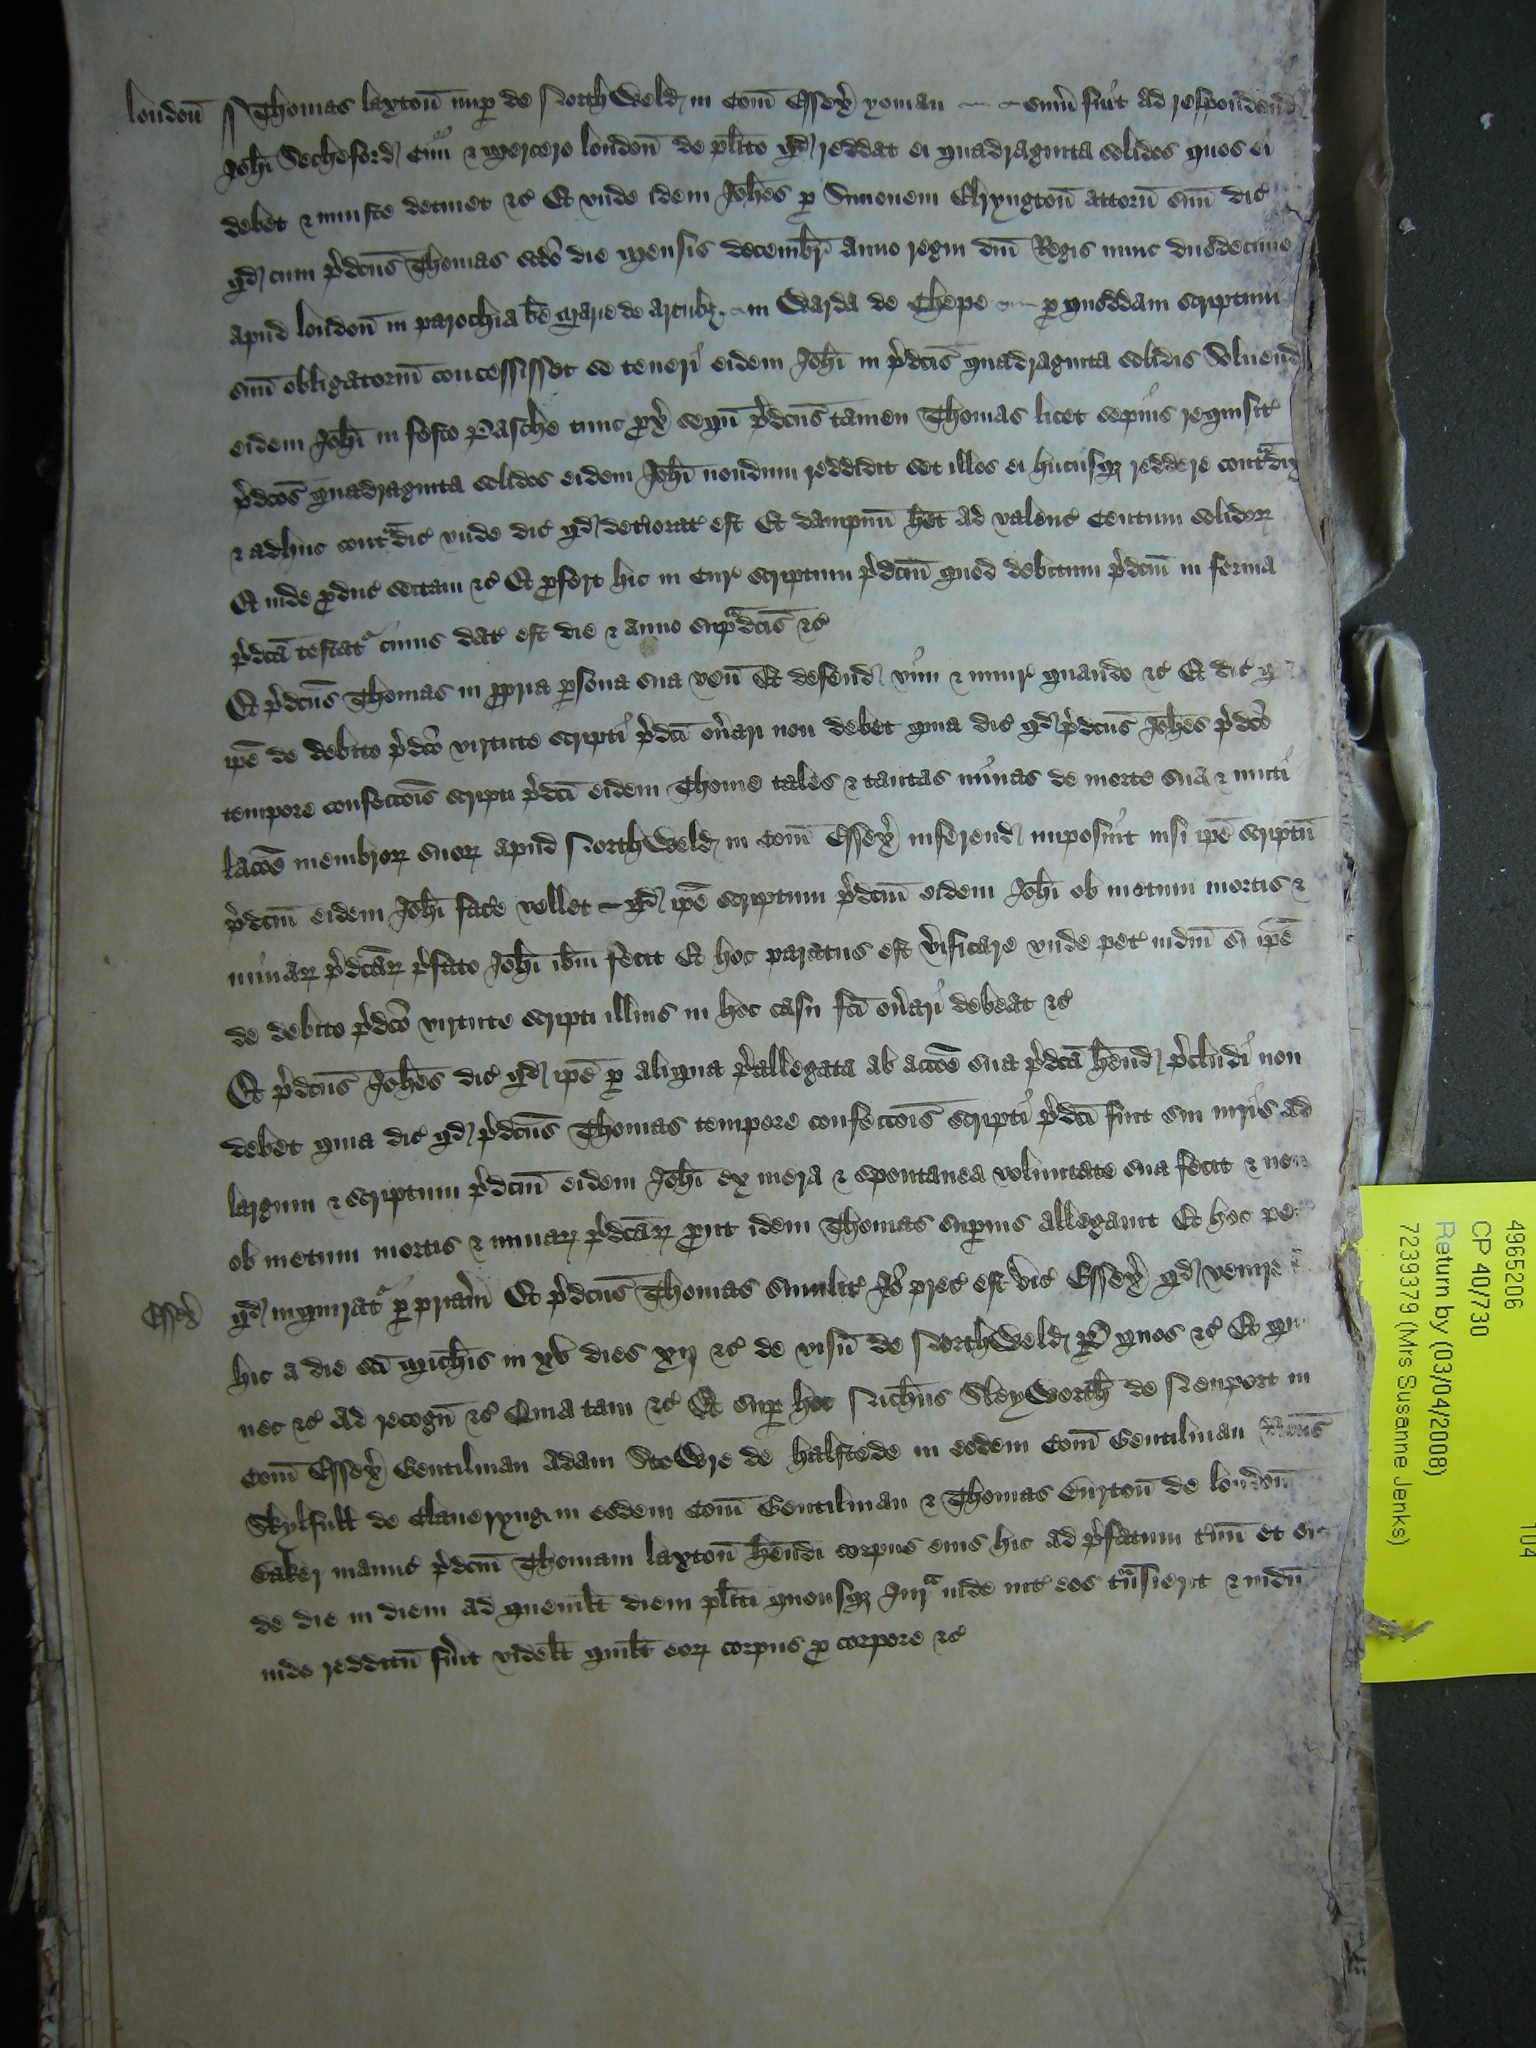 londoñ Thomas laxtoñ nup de North Weld in Com̃ Essex̃ yoman sum̃ fuit ad respondend
Joh̃i Secheford Ciui & mercero londoñ de pl̃ito qd reddat ei quadraginta solidos quos ei
debet & iniuste detinet &c̃ Et vnde idem Joh̃es p Simonem Elryngtoñ attorñ suũ dic̃
qd cum p̃dc̃us Thomas scdo die mensis decembr̃ anno regni dñi Regis nunc duodecimo
apud londoñ in parochia bẽ marie de arcubꝫ in Warda de Chepe p quoddam scriptum
suũ obligatoriũ concessisset se teneri eidem Joh̃i in p̃dc̃is quadraginta solidis Soluend
eidem Joh̃i in festo Pasche tunc px̃ sequñ p̃dc̃us tamen Thomas licet sepius requisit̃
p̃dc̃os quadraginta solidos eidem Joh̃i nondum reddidit set illos ei hucusqꝫ reddere contradix
& adhuc contradic̃ vnde dic̃ qd det̃iorat̃ est Et dampnũ h̃et ad valenc̃ Centum solidoꝝ
Et inde pduc̃ sectam &c̃ Et pfert hic in Cur̃ scriptum p̃dc̃m quod debitum p̃dc̃m in forma
p̃dc̃a testat̃ cuius dat̃ est die & anno supradc̃is &c̃
Et p̃dc̃us Thomas in ppria psona sua veñ Et defend vim & iniur̃ quando &c̃ Et dic̃ q
ip̃e de debito p̃dc̃o virtute scripti p̃dc̃i on̉ari non debet quia dic̃ qd p̃dc̃us Joh̃es p̃dc̃o
tempore confecc̃ois scripti p̃dc̃i eidem Thome tales & tantas minas de morte sua & muti
lac̃oe membroꝝ suoꝝ apud North Weld in Com̃ Essex̃ inferend imposuit nisi ip̃e scriptũ
p̃dc̃m eidem Joh̃i fac̃e vellet qd ip̃e scriptum p̃dc̃m eidem Joh̃i ob metum mortis &
minaꝝ p̃dc̃aꝝ p̃fato Joh̃i ib̃m fecit Et hoc paratus est v̉ificare vnde pet̃ iudm̃ si ip̃e
de debito p̃dc̃o virtute scripti illius in hoc casu fc̃i on̉ari debeat &c̃
Et p̃dc̃us Joh̃es dic̃ qd ip̃e p aliqua p̃allegata ab acc̃oe sua p̃dc̃a h̃end p̃cludi non
debet quia dic̃ qd p̃dc̃us Thomas tempore confecc̃ois scripti p̃dc̃i fuit sui iuris ad
largum & scriptum p̃dc̃m eidem Joh̃i ex mera & spontanea voluntate sua fecit & non
ob metum mortis & minaꝝ p̃dc̃aꝝ put idem Thomas superius allegauit Et hoc pe
Essex̃ qd inquirat̃ p pr̃iam Et p̃dc̃us Thomas similit̃ Jo p̃ec̃ est vic̃ Essex̃ qd venire
hic a die sc̃i Mich̃is in xv dies xij &c̃ de visñ de North Weld P quos &c̃ Et qu
nec &c̃ ad recogñ &c̃ Quia tam &c̃ Et sup hoc Nich̃us Sleyworth de Neuport in
Com̃ Essex̃ Gentilman Adam Stowre de halstede in eodem Com̃ Gentilman
Skylfull de Clauerynge in eodem Com̃ Gentilman & Thomas Burtoñ de londoñ
Baker manuc̃ p̃dc̃m Thomam laxtoñ h̃endi corpus eius hic ad p̃fatum t̃m̃ et sic
de die in diem ad quemlt̃ diem pl̃iti quousqꝫ Jura inde int̃ eos t̃nsierit & iudm̃
inde redditũ fủit videlt̃ quilt̃ eoꝝ corpus p corpore &c̃
4965206
CP 40/730
Return by (03/04/2008)
7239379 (Mrs Susanne Jenks)